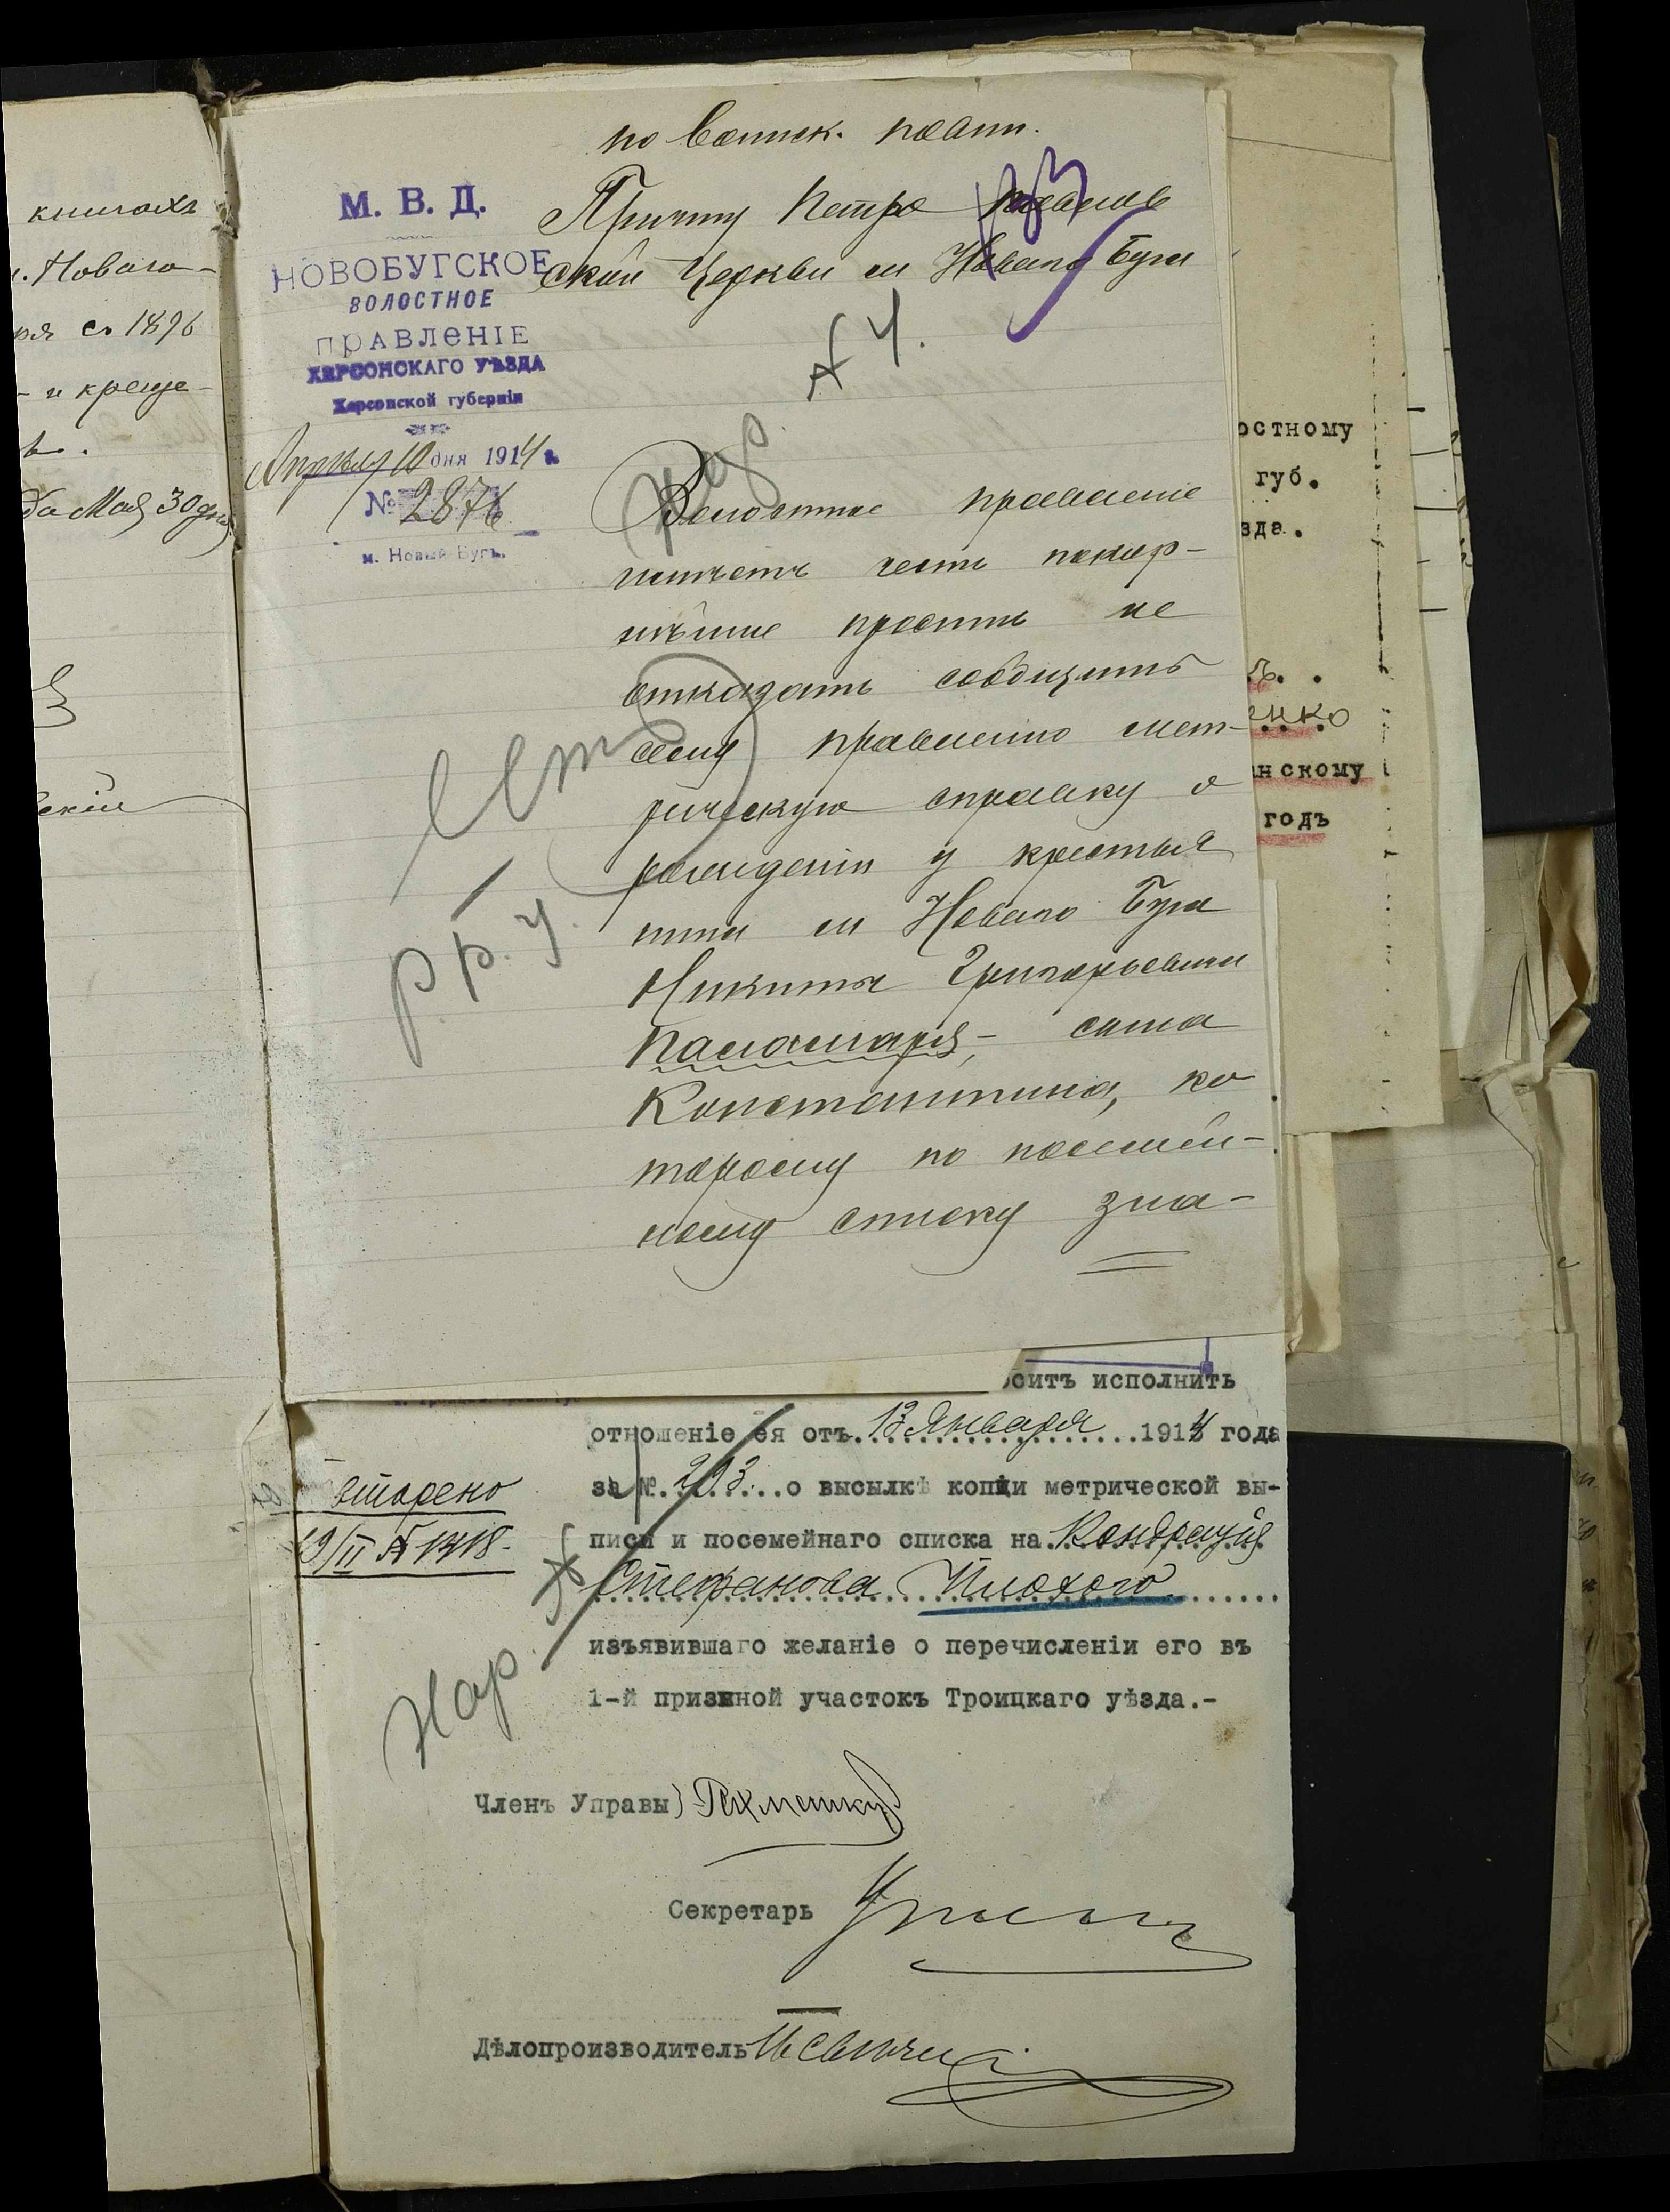 книгахъ
м. Новаго-
съ 1896
- и креще-
Мая 30 дня
по воинск. повин.
М. В. Д.
НОВОБУГСКОЕ
ВОЛОСТНОЕ
ПРАВЛЕНІЕ
ХЕРСОНСКАГО УѢЗДА
Херсонской губерніи
Апрѣля 10 дня 1914 г.
№ 2876
м. Новый-Бугъ.
Причту Петро Павлов
ской Церкви м Новаго Буга
Волостное правленіе
имѣетъ честь покор-
нѣйше просить не
отказать сообщить
сему правленію мет-
рическую справку о
рожденіи у крестья
нина м Новаго Буга
Никиты Григорьевича
Паламаря, - сына
Константина, ко
торому по посемей-
ному списку зна-
остному
губ.
зда.
енко
нскому
годъ
осить исполнить
отношеніе ея отъ 13 Января 1914 года
за № 293 о высылкѣ копіи метрической вы-
писи и посемейнаго списка на Кондратія
Стефанова Плохого
изъявившаго желаніе о перечисленіи его въ
1-й призывной участокъ Троицкаго уѣзда.-
вторено
19/II № 1418.
Нар.
Членъ Управы
Секретарь
Дѣлопроизводитель